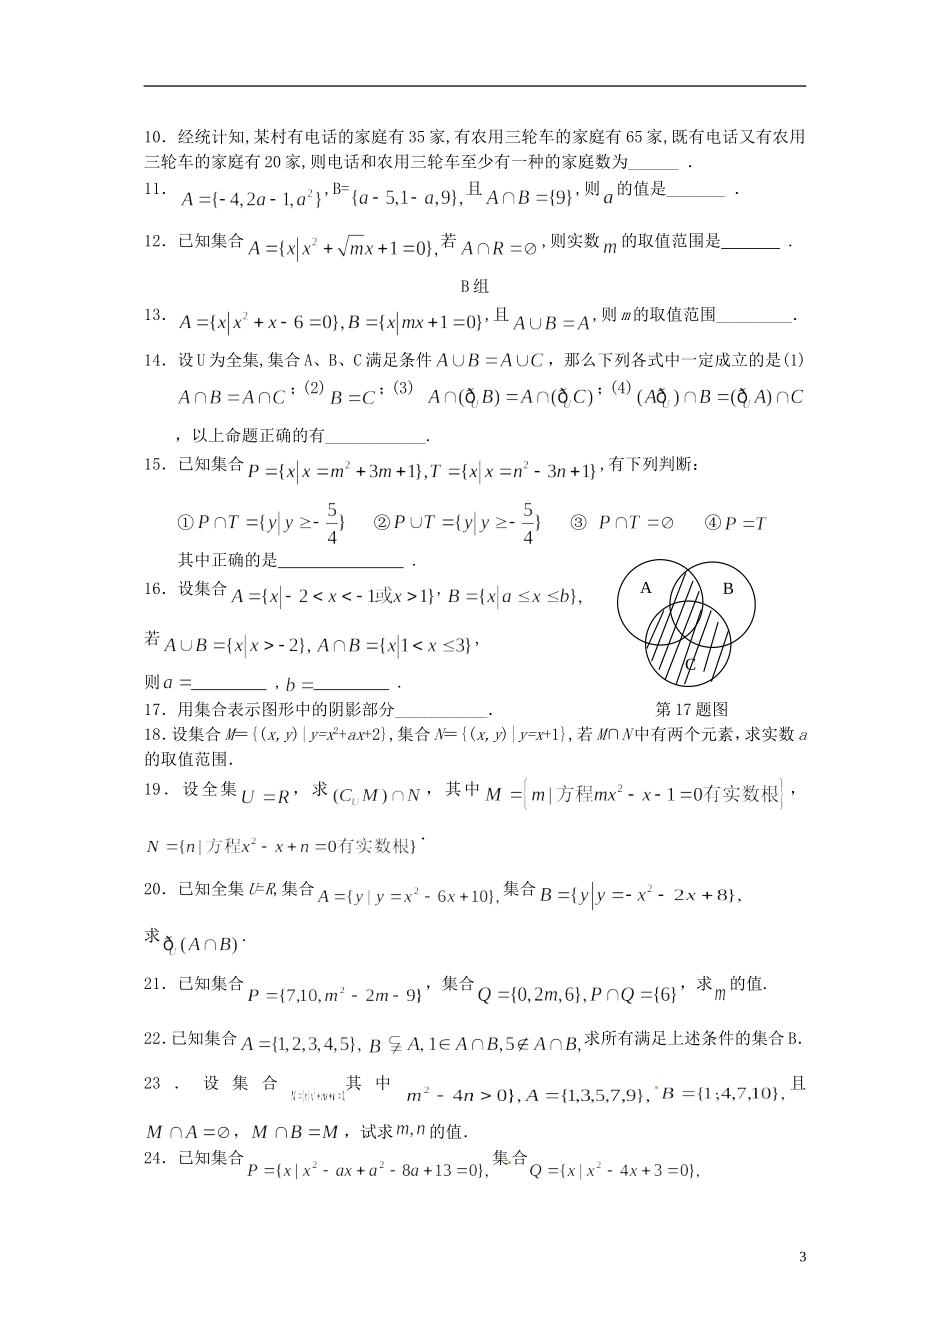 10．经统计知,某村有电话的家庭有 35 家,有农用三轮车的家庭有 65 家,既有电话又有农用
三轮车的家庭有 20 家,则电话和农用三轮车至少有一种的家庭数为______ ．
11． A={-4,2a-1,a²},B={a-5,1-a,9},且 A∩B={9},则 a 的值是_______ ．
12．已知集合 A={x|x²+√m x+1=0},若 A∩R=∅,则实数 m 的取值范围是_______ ．
B 组
13．A={x|x²+x-6=0},B={x|mx+1=0},且 A∪B=A,则 m 的取值范围_________．
14．设 U 为全集,集合 A、B、C 满足条件 A∪B=A∪C，那么下列各式中一定成立的是(1)
A∩B=A∩C；(2) B=C；(3) A∩(ð_U B)=A∩(ð_U C)；(4) (Að_U )∩B=(ð_U A)∩C
，以上命题正确的有____________．
15．已知集合 P={x|x=m²+3m+1},T={x|x=n²-3n+1},有下列判断：
①P∩T={y|y≥-5/4} ②P∪T={y|y≥-5/4} ③ P∩T=∅ ④P=T
其中正确的是_______________ ．
16．设集合 A={x|-2<x<-1或x>1},B={x|a≤x≤b},
若 A∪B={x|x>-2}, A∩B={x|1<x≤3},
则 a=_________ ，b=_________ ．
A B
C
17．用集合表示图形中的阴影部分___________． 第 17 题图
18．设集合 M={(x,y)|y=x²+ax+2},集合 N={(x,y)|y=x+1},若 M∩N 中有两个元素，求实数 a
的取值范围．
19．设全集 U=R，求 (C_U M)∩N，其中 M={m|方程mx²-x-1=0有实数根}，
N={n|方程x²-x+n=0有实数根}．
20．已知全集 U=R,集合 A={y|y=x²-6x+10},集合 B={y|y=-x²-2x+8},
求 ð_U (A∩B)．
21．已知集合 P={7,10,m²-2m-9}，集合 Q={0,2m,6},P∩Q={6}，求 m 的值.
22．已知集合 A={1,2,3,4,5}, B⫋A,1∈A∩B,5∉A∩B,求所有满足上述条件的集合 B．
23．设集合 其中 m²-4n>0},A={1,3,5,7,9},B={1;4,7,10},且
M∩A=∅，M∩B=M，试求 m,n 的值．
24．已知集合 P={x|x²-ax+a²-8a+13=0},集合 Q={x|x²-4x+3=0},
3